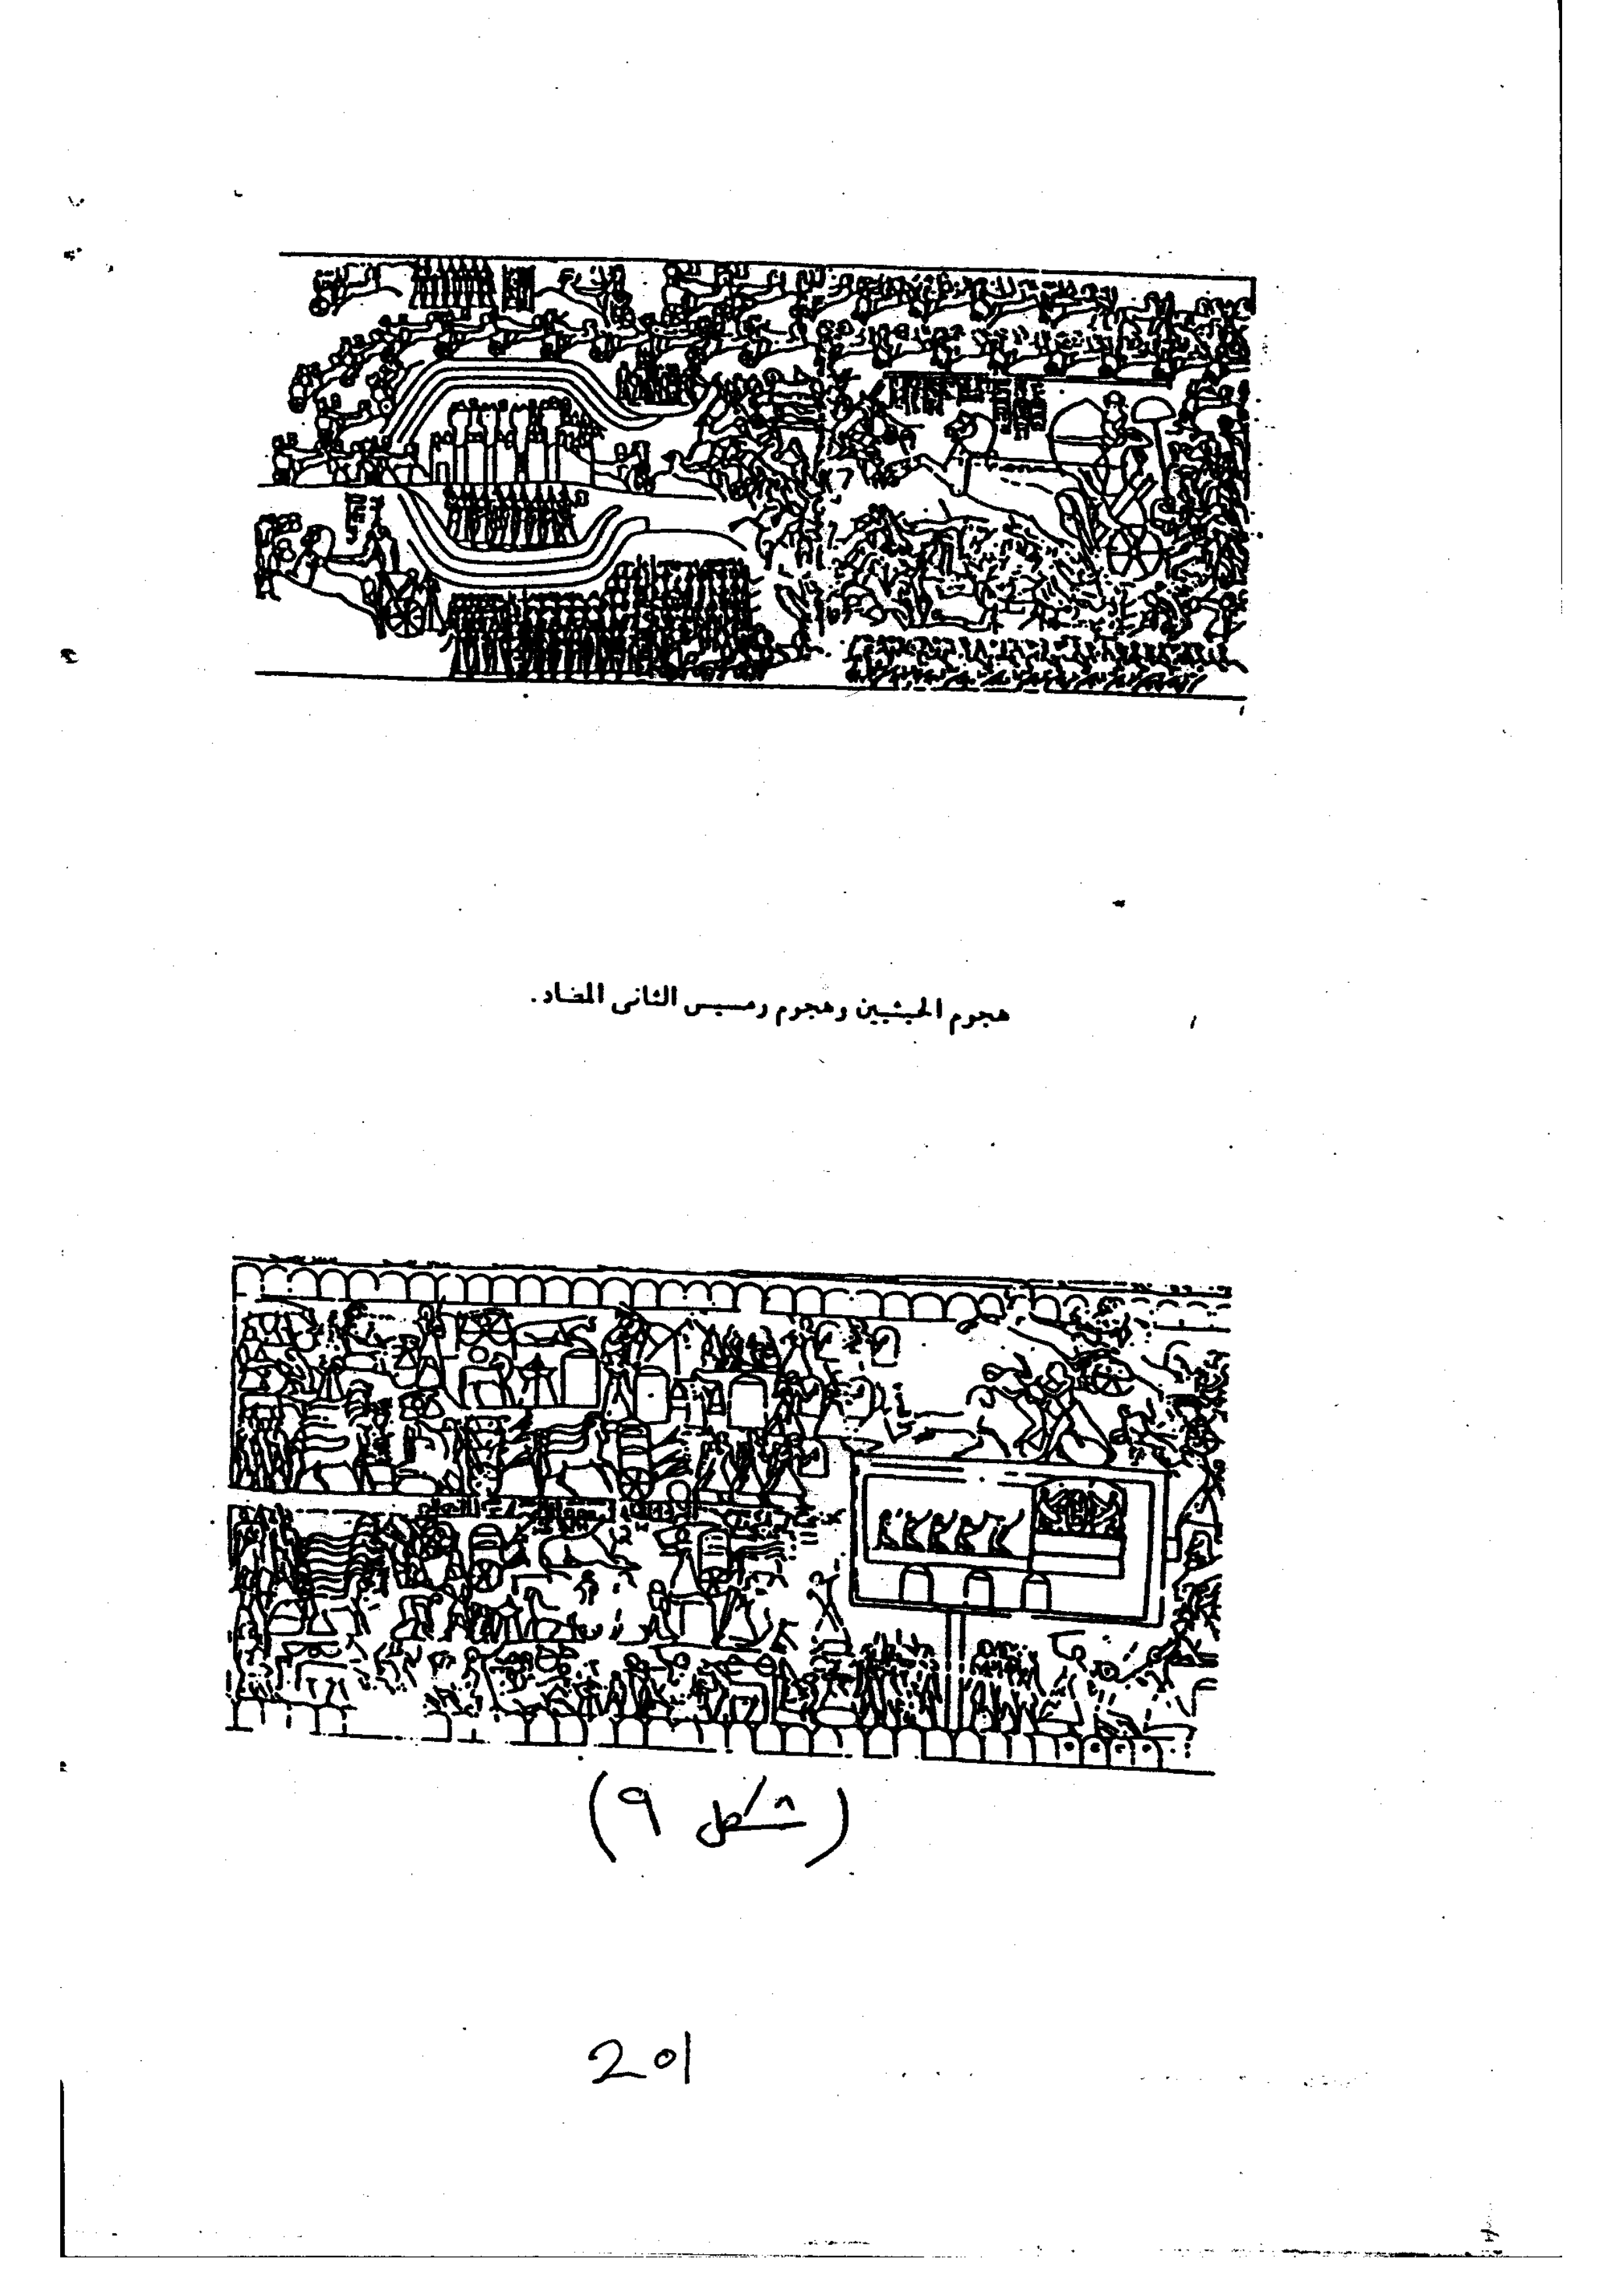 هجوم الحيثيين وهجوم رمسيس الثانى المضاد.
(شكل ٩)
201